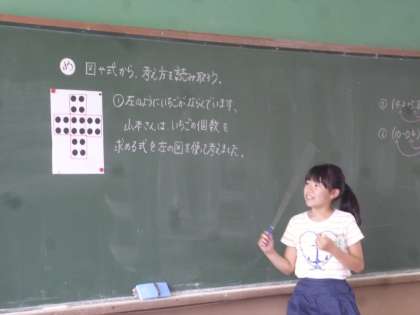 め 図や式から、考え方を読み取ろう。
① 左のようにいちごがならんでいます。
山本さんは、いちごの個数を
求める式を左の図を使って考えました。